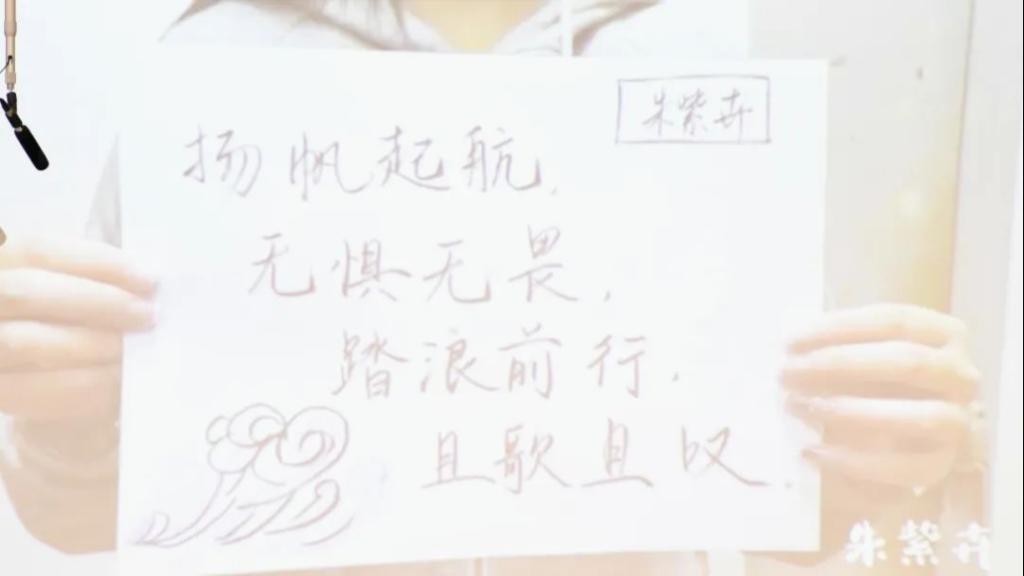 朱紫卉
扬帆起航,
无惧无畏,
踏浪前行.
且歌且叹.
朱紫卉